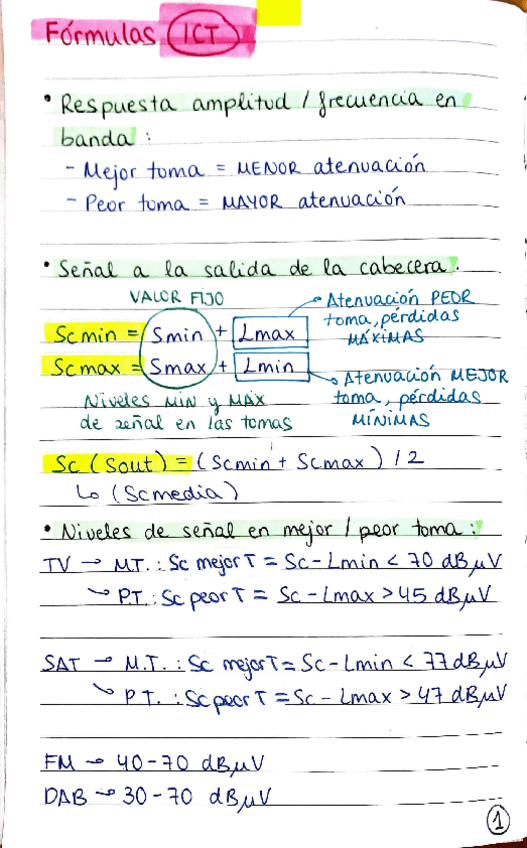 Fórmulas ICT
• Respuesta amplitud / frecuencia en
banda :
- Mejor toma = MENOR atenuación
- Peor toma = MAYOR atenuación
• Señal a la salida de la cabecera.
VALOR FIJO
Scmin = Smin + Lmax
Atenuación PEOR
toma, pérdidas
MÁXIMAS
Scmax = Smax + Lmin
Atenuación MEJOR
toma, pérdidas
MÍNIMAS
Niveles MIN y MAX
de señal en las tomas
Sc (Sout) = (Scmin + Scmax) / 2
↳ (Scmedia)
• Niveles de señal en mejor / peor toma :
TV → M.T. : Sc mejor T = Sc - Lmin < 70 dBμV
↘ P.T. : Sc peor T = Sc - Lmax > 45 dBμV
SAT → M.T. : Sc mejor T = Sc - Lmin < 77 dBμV
↘ P.T. : Sc peor T = Sc - Lmax > 47 dBμV
FM → 40-70 dBμV
DAB → 30-70 dBμV
1